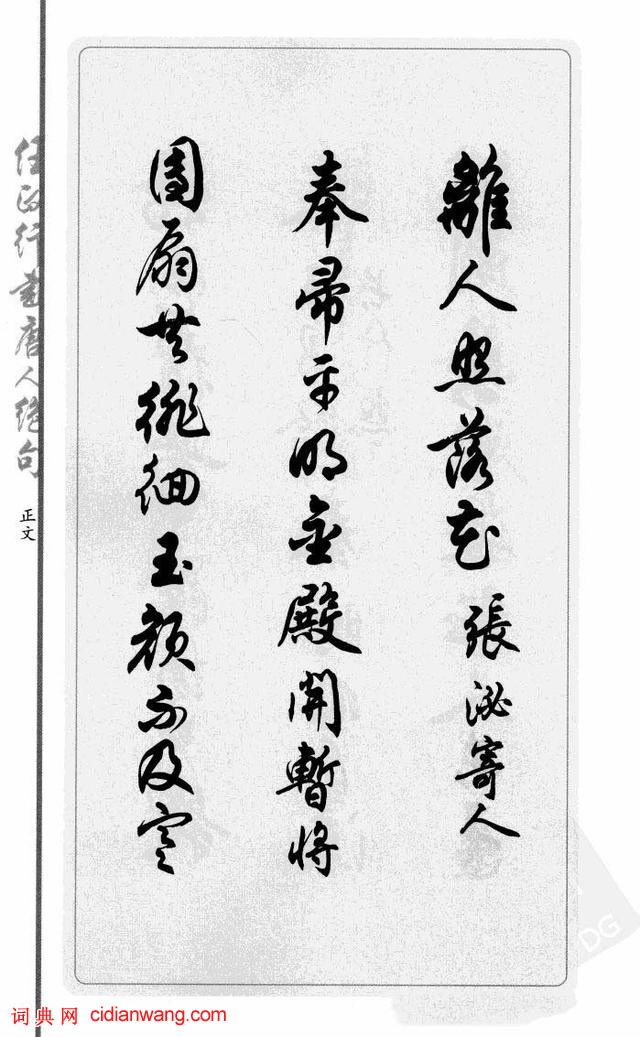 離人照落花 張泌寄人
奉帚平明金殿開暫將
團扇共徘徊玉顏不及寒
任政行書唐人绝句
正文
词典网 cidianwang.com
DG